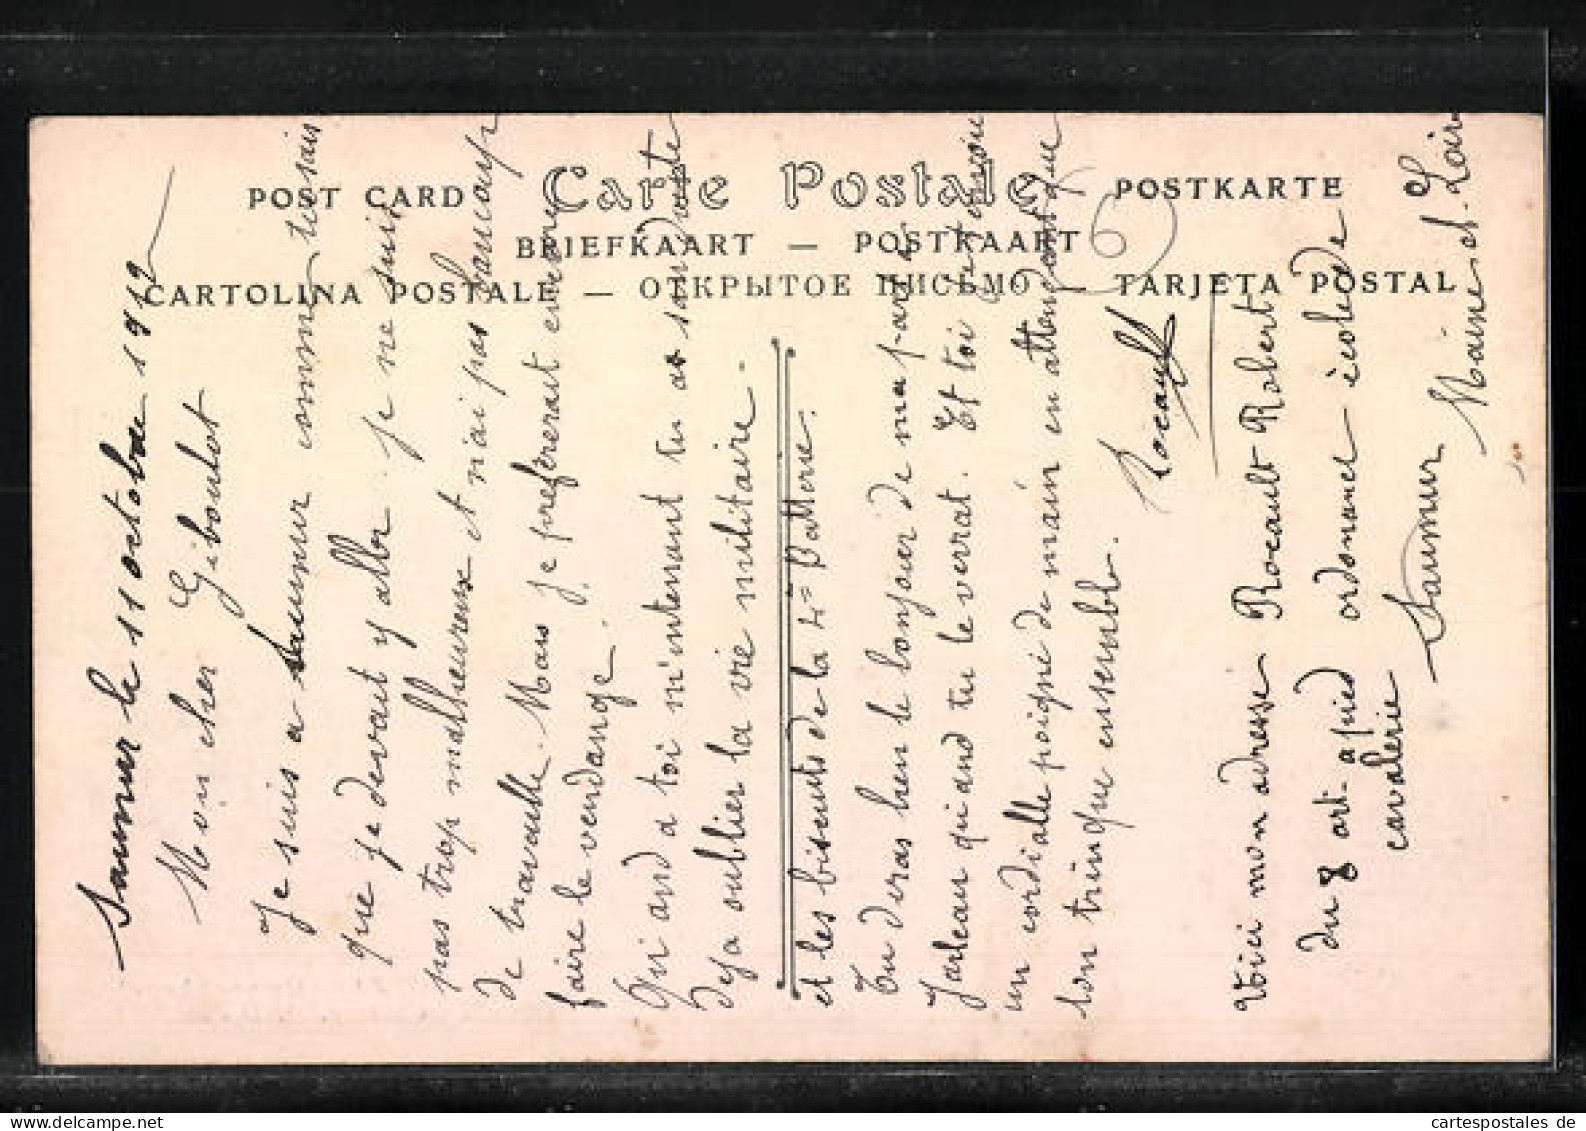 POST CARD Carte Postale POSTKARTE
BRIEFKAART — POSTKAART
CARTOLINA POSTALE — ОТКРЫТОЕ ПИСЬМО — TARJETA POSTAL
6
Saumur le 11 octobre 1912
Mon cher Giboulot
Je suis a Saumur comme tu sais
que je devait y aller. je ne suis
pas trop malheureuse et n'ai pas baucoup
de travaille. Mais je prefererait encore
faire le vendange.
Qui and a toi m'intenant tu as sandoute
deja oublier la vie militaire.
et les biscuits de la 4e Batterie.
Tu diras bien le bonjour de ma part a
Jarleau quand tu le verrat. Et toi
un cordialle poigné de main en attendant que
l'on trinque ensemble.
Rocault
Voici mon adresse Rocault Robert
du 8 art. a pied ordonance école de
cavalerie
Saumur
Maine et-Loire
cartespostales de